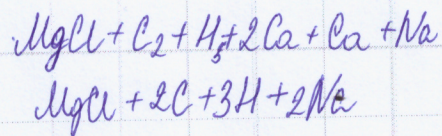 MgCl + C₂ + H₅ + 2Ca + Ca + Na
MgCl + 2C + 3H + 2Na